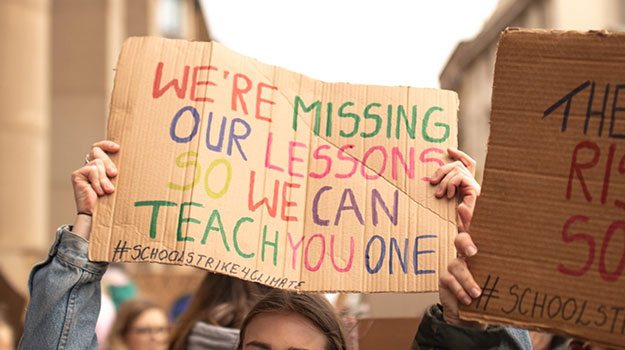 WE'RE MISSING
OUR LESSONS
SO WE CAN
TEACH YOU ONE
#SCHOOLSTRIKE4CLIMATE
THE
RIS
SO
#SCHOOLS